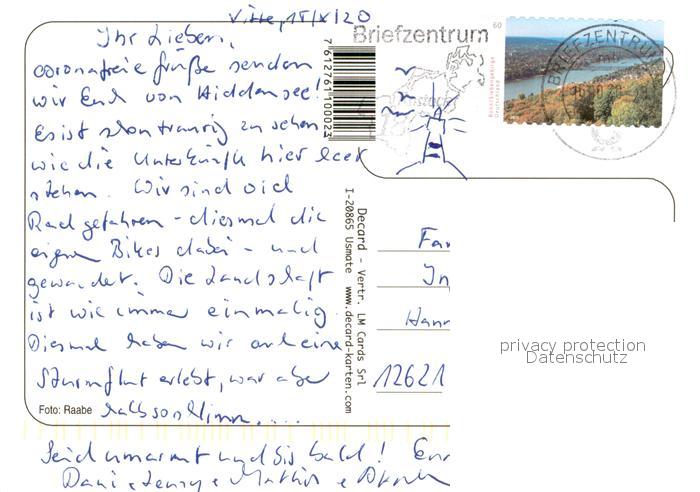 Vitte, 15/X/20
Ihr Lieben,
coronafreie Grüße senden
wir Euch von Hiddensee!
Es ist schon traurig zu sehen
wie die Unterkünfte hier leer
stehen. Wir sind viel
Rad gefahren - diesmal die
eigenen Bikes dabei - und
gewandert. Die Landschaft
ist wie immer einmalig
Diesmal haben wir auch eine
Sturmflut erlebt, war aber
halb so schlimm....
Seid umarmt und bis bald! Eure
Foto: Raabe
7612761100023
Decard - Vertr. LM Cards Srl
I-20865 Usmate www.decard-karten.com
Briefzentrum
60
Deutschland
BRIEFZENTRUM
Fam
In
Hann
12621
privacy protection
Datenschutz